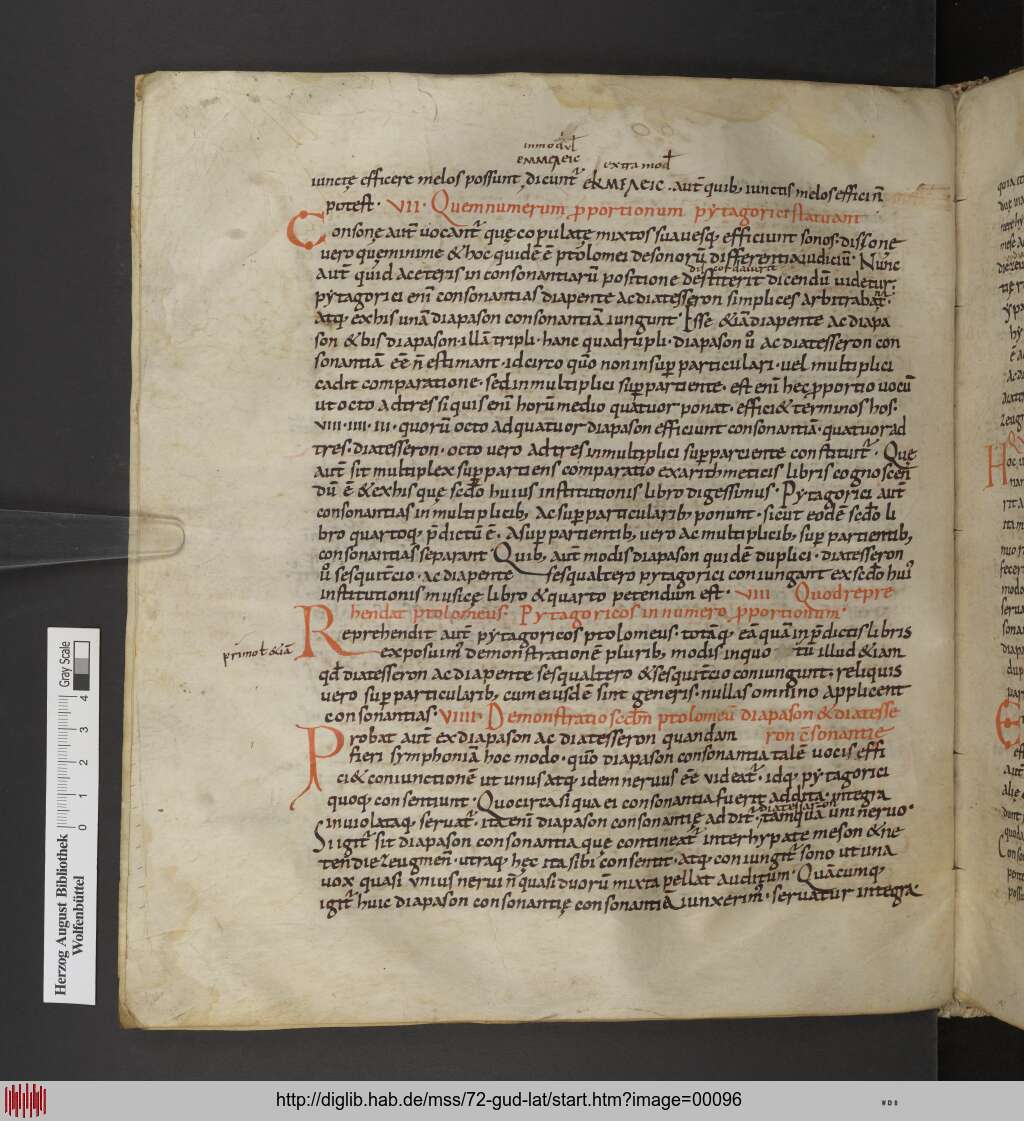 inmodul
ЄΜΜЄΛЄΙC extra mod̄
iunctę efficere melos possunt, dicunt̄ ЄΚΜЄΛЄΙC. aut̄ quib; iunctis melos effici n̄
potest. VII. Quem numerum pportionum pytagorici statuant
Consonę aut̄ vocant̄ quę copulatę mixtos suauesq; efficiunt sonos. dissonę
vero quę minime & hoc quidē ē ptolomei de sonorū differentia iudiciū. Nunc
aut̄ quid a ceteris in consonantiarū positione destiterit dicendū videtur;
pytagorici eni consonantias diapente ac diatesseron simplices arbitrabant̄.
atq; ex his unā diapason consonantiā iungunt. Esse & iā diapente ac diapa
son & bis diapason. illā tripli. hanc quadrupli. diapason ū ac diatesseron con
sonantiā eē n̄ estimant. idcirco quō non in sup particulari. vel multiplici
cadit comparatione. sed in multiplici sup partiente. est eni hęc pportio vocū
ut octo ad tres si quis eni horū medio quatuor ponat. effici& terminos hos.
VIII. IIII. III. quorū octo ad quatuor diapason efficiunt consonantiā. quatuor ad
tres. diatesseron. octo vero ad tres in multiplici suppartiente constituit̄. Quę
aut̄ sit multiplex suppartiens comparatio ex arithmeticis libris cognoscen
dū ē & ex his quę secdo huius institutionis libro digessimus. Pytagorici aut̄
consonantias in multiplicib; ac supparticularib; ponunt. sicut eodē secdo li
bro quartoq; p̄dictū ē. A suppartientib; vero ac multiplicib; sup partientib;
consonantias separant. Quib; aut̄ modis diapason quidē duplici. diatesseron
ū sesquitcio. ac diapente sesqualtero pytagorici coniungant ex secdo hui'
institutionis musicę libro & quarto petendum est. VIII Quod repre
hendat ptolomeus. Pytagoricos in numero pportionum.
Reprehendit aut̄ pytagoricos ptolomeus. totāq; eā quā in p̄dictis libris
primo & iā exposuim' demonstrationē plurib; modis in quo tū illud & iam
qd̄ diatesseron ac diapente sesqualtero & sesquitcio coniungunt; reliquis
vero sup particularib; cum eiusdē sint generis. nullas omnino applicent
consonantias. VIIII. Demonstratio secdm ptolomeū diapason & diatesse
Probat aut̄ ex diapason ac diatesseron quandam ron cs̄onantię
fieri symphoniā hoc modo. quō diapason consonantia talē vocis effi
ci& coniunctionē ut unus atq; idem nervus eē videat̄. idq; pytagorici
quoq; consentiunt. Quocirca si qua ei consonantia fuerit addita. integra
inviolataq; servat̄. ita eni diapason consonantię addit̄. tamquā uni nervo.
Si igit̄ sit diapason consonantia quę contineat̄ inter hypate meson & ne
ten diezeugmen. utraq; hęc ita sibi consentit. atq; coniungit̄ sono ut una
vox quasi unius nervi n̄ quasi duorū mixta pellat auditum. Quamcumq;
igit̄ huic diapason consonantię consonantiā iunxerim'. servatur integra
Herzog August Bibliothek
Wolfenbüttel
Gray Scale
0 1 2 3 4
http://diglib.hab.de/mss/72-gud-lat/start.htm?image=00096